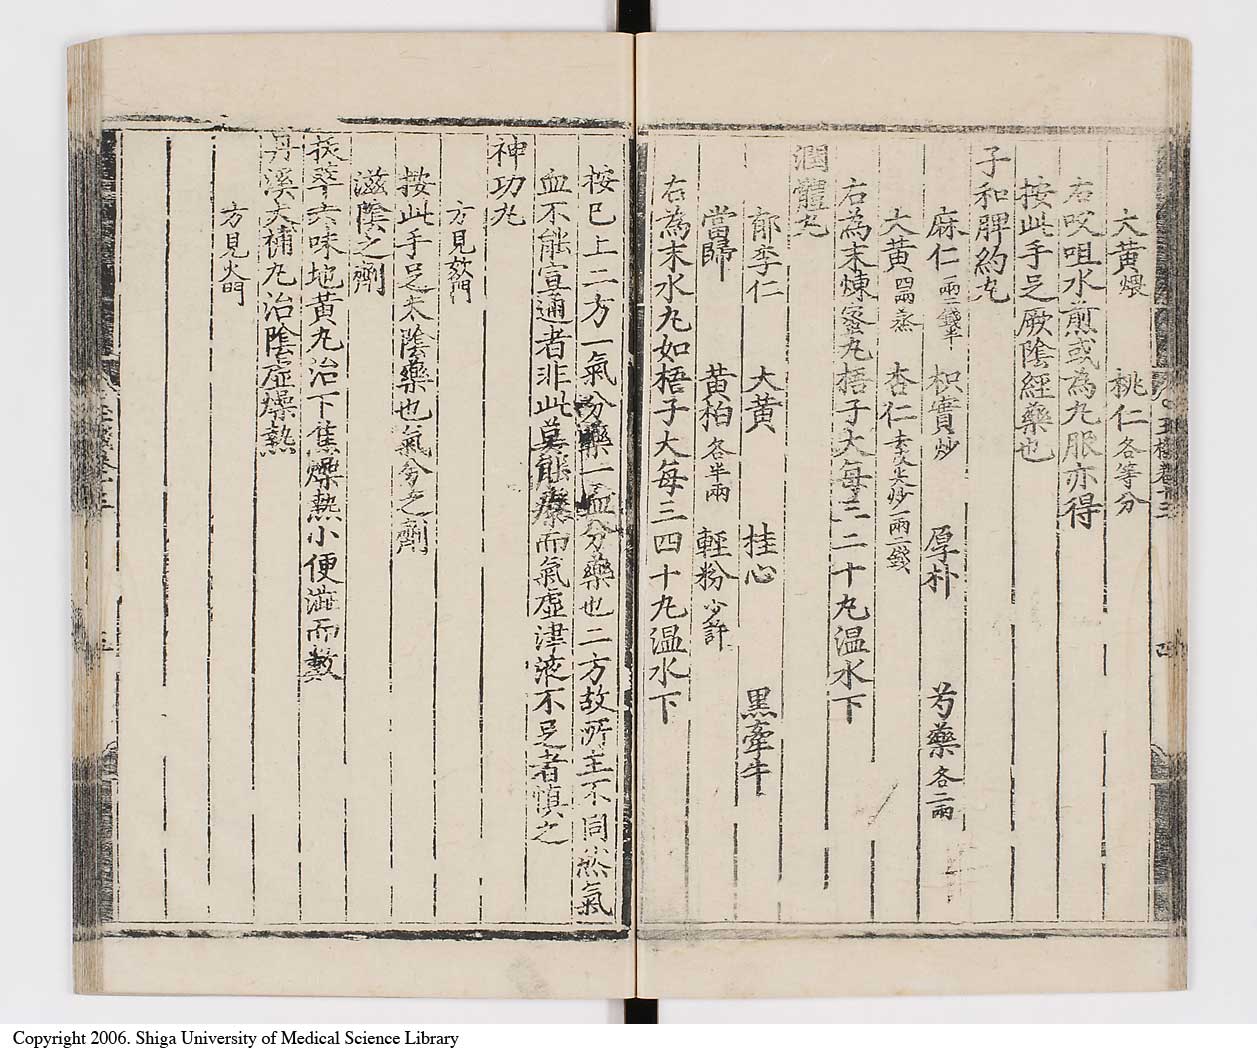 大黃煨 桃仁各等分
右㕮咀水煎或為丸服亦得
按此手足厥陰經藥也
子和脾約丸
麻仁一兩二錢半 枳實炒 厚朴 芍藥各二兩
大黃四兩蒸 杏仁去皮尖炒一兩二錢
右為末煉蜜丸梧子大每三二十丸温水下
潤體丸
郁李仁 大黃 桂心 黑牽牛
當歸 黃柏各半兩 輕粉少許
右為末水丸如梧子大每三四十丸温水下
按已上二方一氣分藥一血分藥也二方故所主不同然氣
血不能宣通者非此莫能療而氣虛津液不足者慎之
神功丸
方見欬門
按此手足太陰藥也氣分之劑
滋陰之劑
拔萃六味地黃丸治下焦燥熱小便澁而數
丹溪大補丸治陰虛燥熱
方見火門
Copyright 2006. Shiga University of Medical Science Library